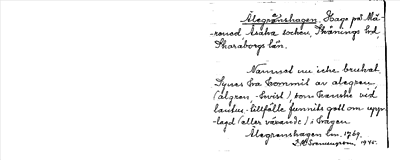 Ålegrenshagen. Hage på Mä-
romed Åsaka socken, Skånings hd,
Skaraborgs län.
Namnet nu icke brukat.
Synes ha kommit av alegren
(algren, -kvist), som kanske vid
-tillfälle funnits gott om upp-
lagd (eller växande) i hagen
Ålegrenshagen lm. 1769.
1945.